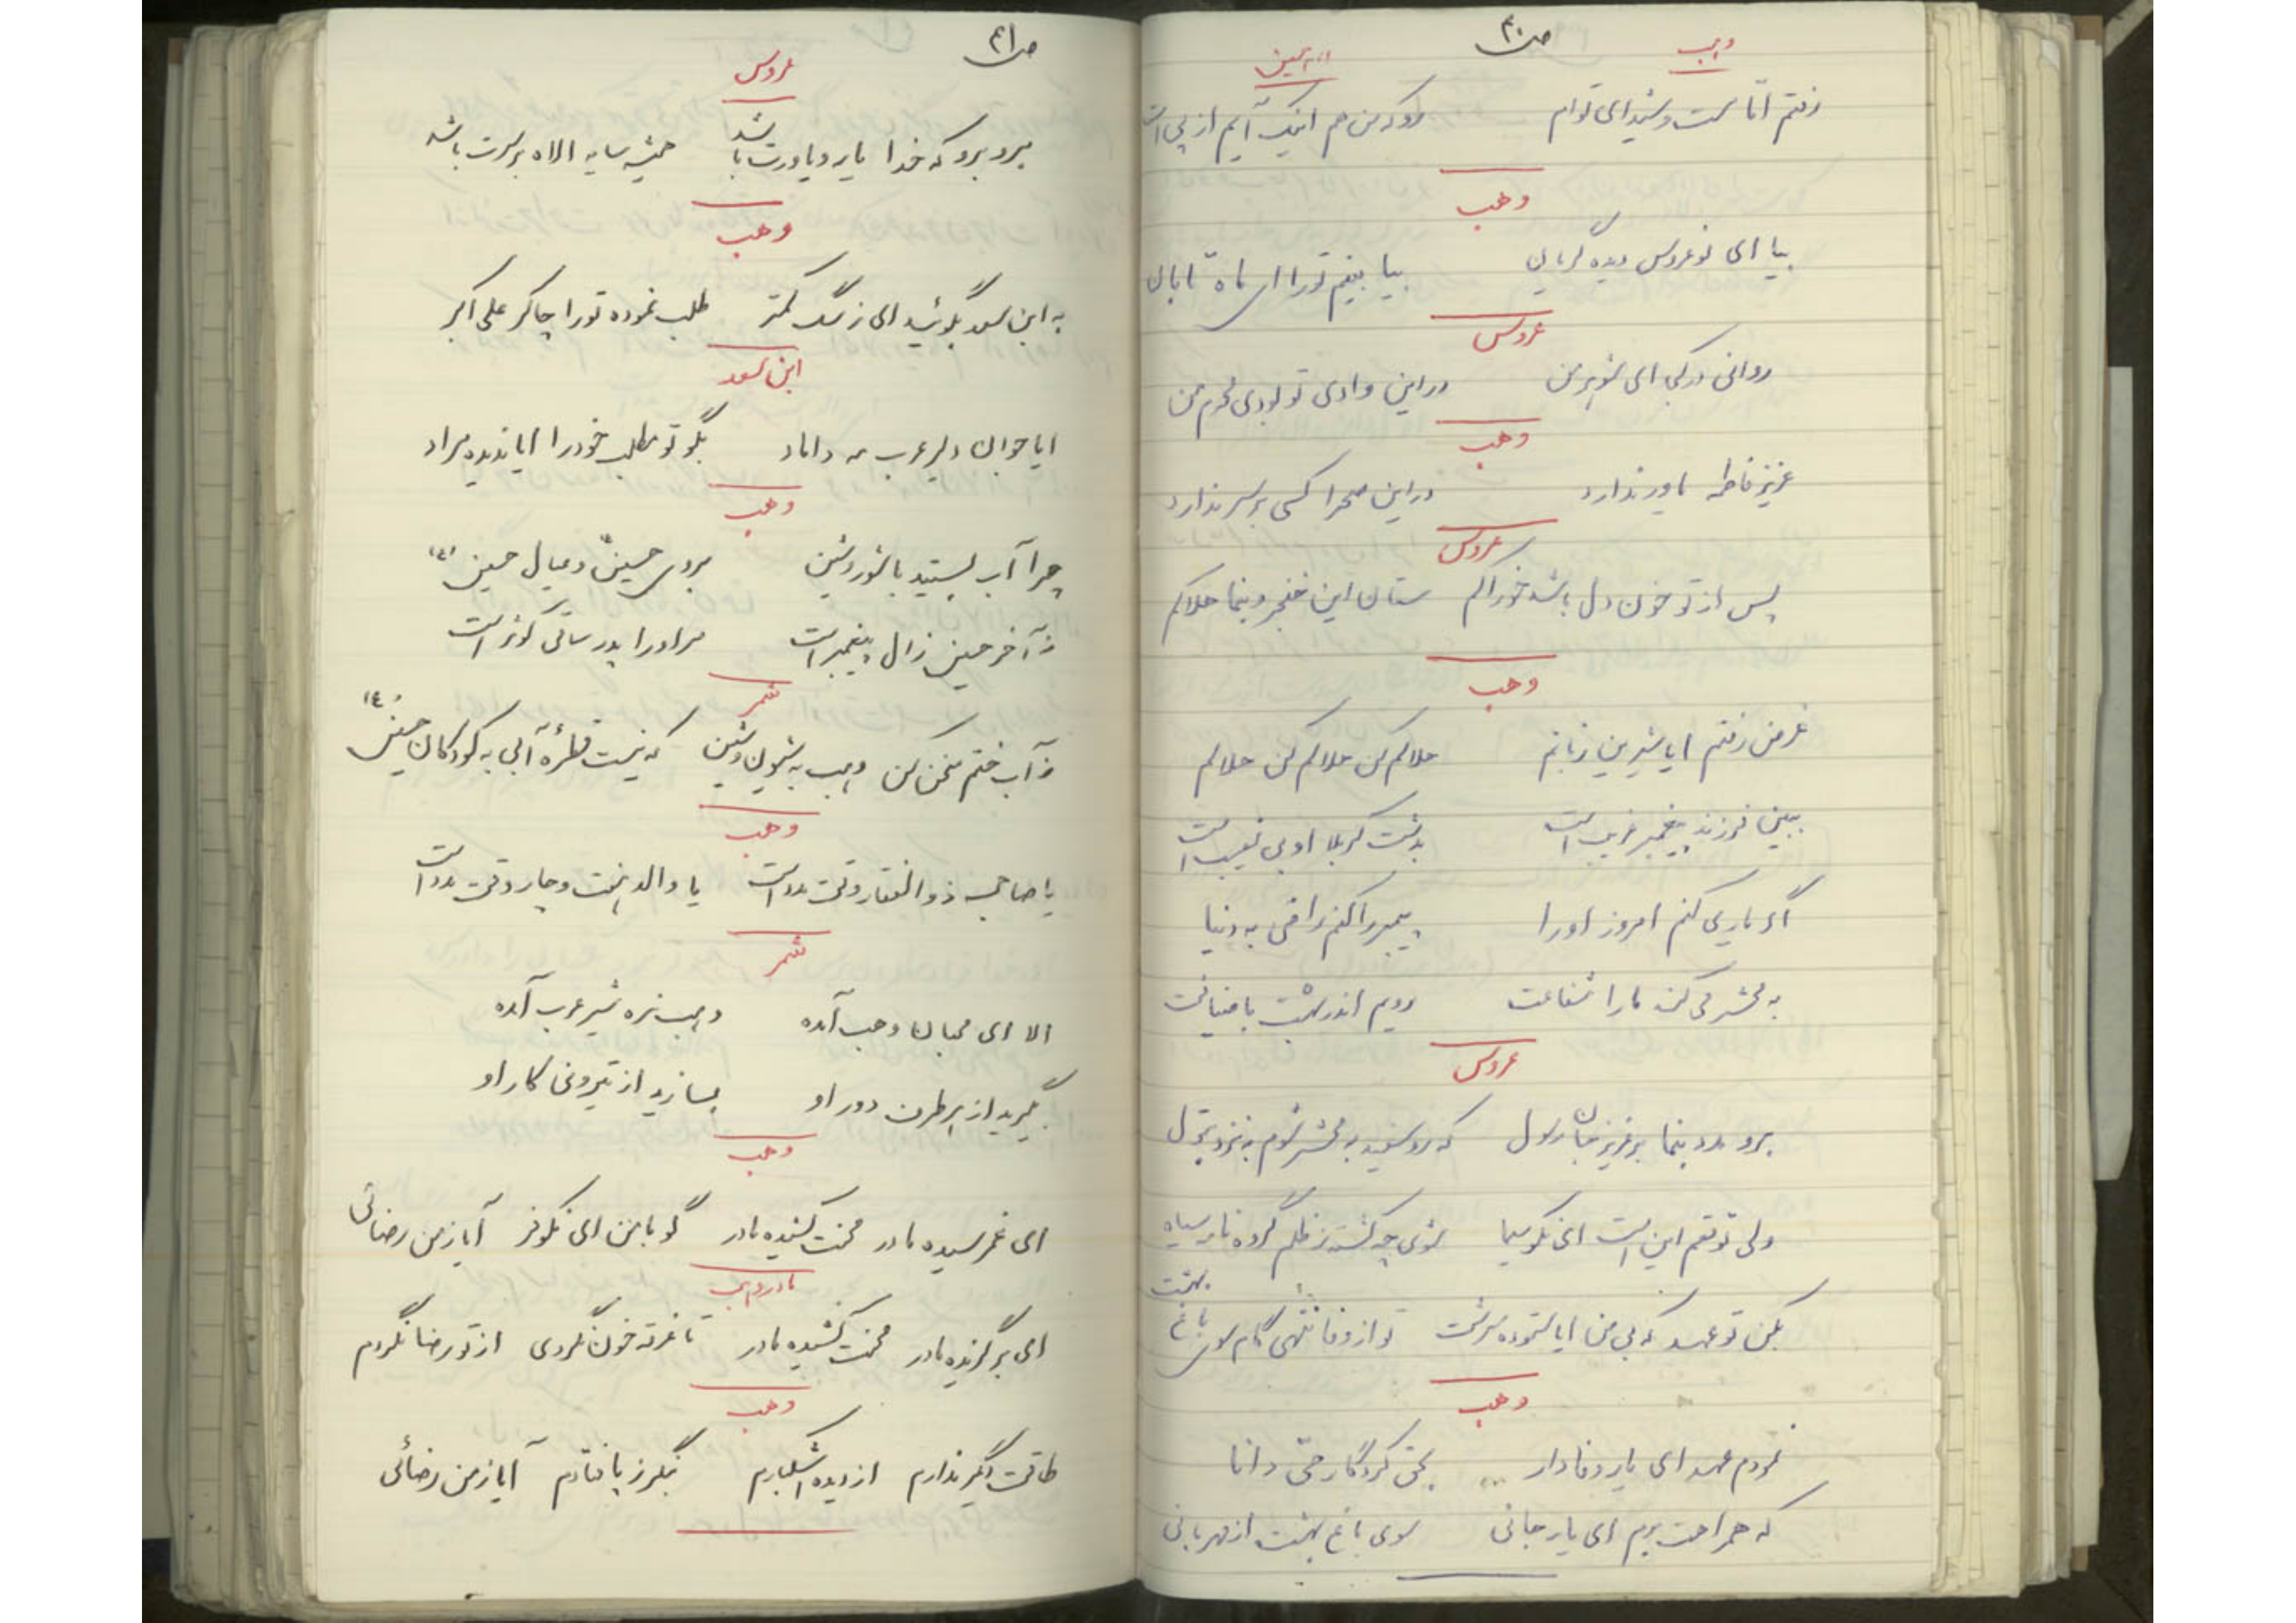 ص۴۰
وهب
امام حسین
رفتم امّا مست و شیدای توام روکه من هم اینک آیم از پی ات
وهب
بیا ای نوعروس دیده گریان بیا بینم تو را ای ماه تابان
عروس
روانی در کجا ای شوهر من در این وادی تو بودی محرم من
وهب
عزیز فاطمه یاور ندارد در این صحرا کسی بر سر ندارد
عروس
پس از تو خون دل باشد خوراکم ستان این خنجر و بنما هلاکم
وهب
غرض رفتم ایا شیرین زبانم حلالم کن حلالم کن حلالم
ببین فرزند پیغمبر غریب است بدشت کربلا او بی نصیب است
اگر یاری کنم امروز او را پیمبر را کنم راضی به دنیا
به محشر می کند ما را شفاعت رویم اندر بهشت با ضیافت
عروس
برو مدد بنما بر عزیز جان رسول که رو سفید به محشر شوم به نزد بتول
ولی توقعم این است ای نکو سیما شوی چه کشته ز ظلم گروه نامه سیاه
بکن تو عهد که بی من ایا ستوده سرشت تو از وفا ننهی گام سوی باغ بهشت
وهب
نمودم عهد ای یار وفادار بحق کردگار حیّ دانا
که همراهت برم ای یار جانی سوی باغ بهشت از مهربانی
ص۴۱
عروس
برو برو که خدا یار و یاورت باشد همیشه سایه الاه بر سرت باشد
وهب
به ابن سعد بگوئید ای ز سگ کمتر طلب نموده تو را چاکر علی اکبر
ابن سعد
ایا جوان دلیر عرب مه داماد بگو تو مطلب خود را ایا ندیده مراد
وهب
چرا آب بستید با شور و شین بروی حسین و عیال حسین (ع)
ز آخر حسین ز آل پیغمبر است مر او را پدر ساقی کوثر است
شمر
ز آب ختم سخن کن وهب به شیون و شین که نیست قطره آبی به کودکان حسین (ع)
وهب
یا صاحب ذوالفقار وقت مدد است یا والد هشت و چار وقت مدد است
شمر
الا ای محبان وهب آمده وهب نره شیر عرب آمده
بگیرید از هر طرف دور او بسازید از تیر و نی کار او
وهب
ای غمرسیده مادر محنت کشیده مادر گو با من ای نکوفر آیا ز من رضائی
مادر وهب
ای برگزیده مادر محنت کشیده مادر تا غرقه خون نگردی از تو رضا نگردم
وهب
طاقت دگر ندارم از دیده اشکبارم بنگر ز پا فتادم آیا ز من رضائی